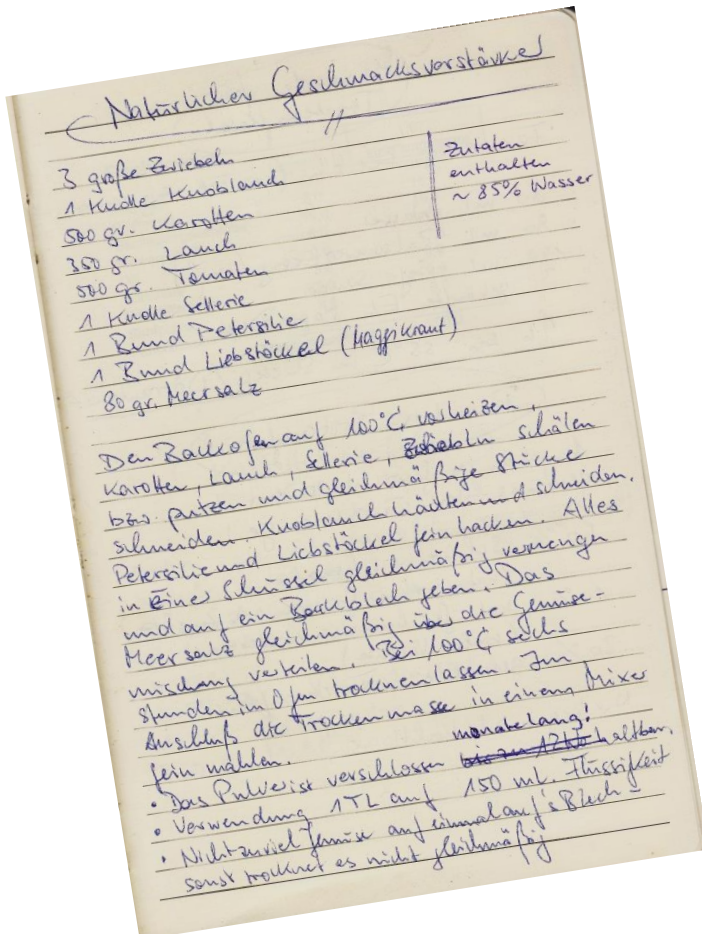 Natürlicher Geschmacksverstärker
3 große Zwiebeln
1 Knolle Knoblauch
500 gr. Karotten
350 gr. Lauch
500 gr. Tomaten
1 Knolle Sellerie
1 Bund Petersilie
1 Bund Liebstöckel (Maggikraut)
80 gr. Meersalz
Zutaten
enthalten
~ 85% Wasser
Den Backofen auf 100°C vorheizen,
Karotten, Lauch, Sellerie, Zwiebeln schälen
bzw. putzen und gleichmäßige Stücke
schneiden. Knoblauch häuten und schneiden.
Petersilie und Liebstöckel fein hacken. Alles
in einer Schüssel gleichmäßig vermengen
und auf ein Backblech geben. Das
Meersalz gleichmäßig über die Gemüse-
mischung verteilen. Bei 100°C sechs
Stunden im Ofen trocknen lassen. Im
Anschluß die Trockenmasse in einem Mixer
fein mahlen.
monatelang!
• Das Pulver ist verschlossen haltbar.
• Verwendung 1TL auf 150 ml. Flüssigkeit
• Nicht zuviel Gemüse auf einmal auf's Blech -
sonst trocknet es nicht gleichmäßig